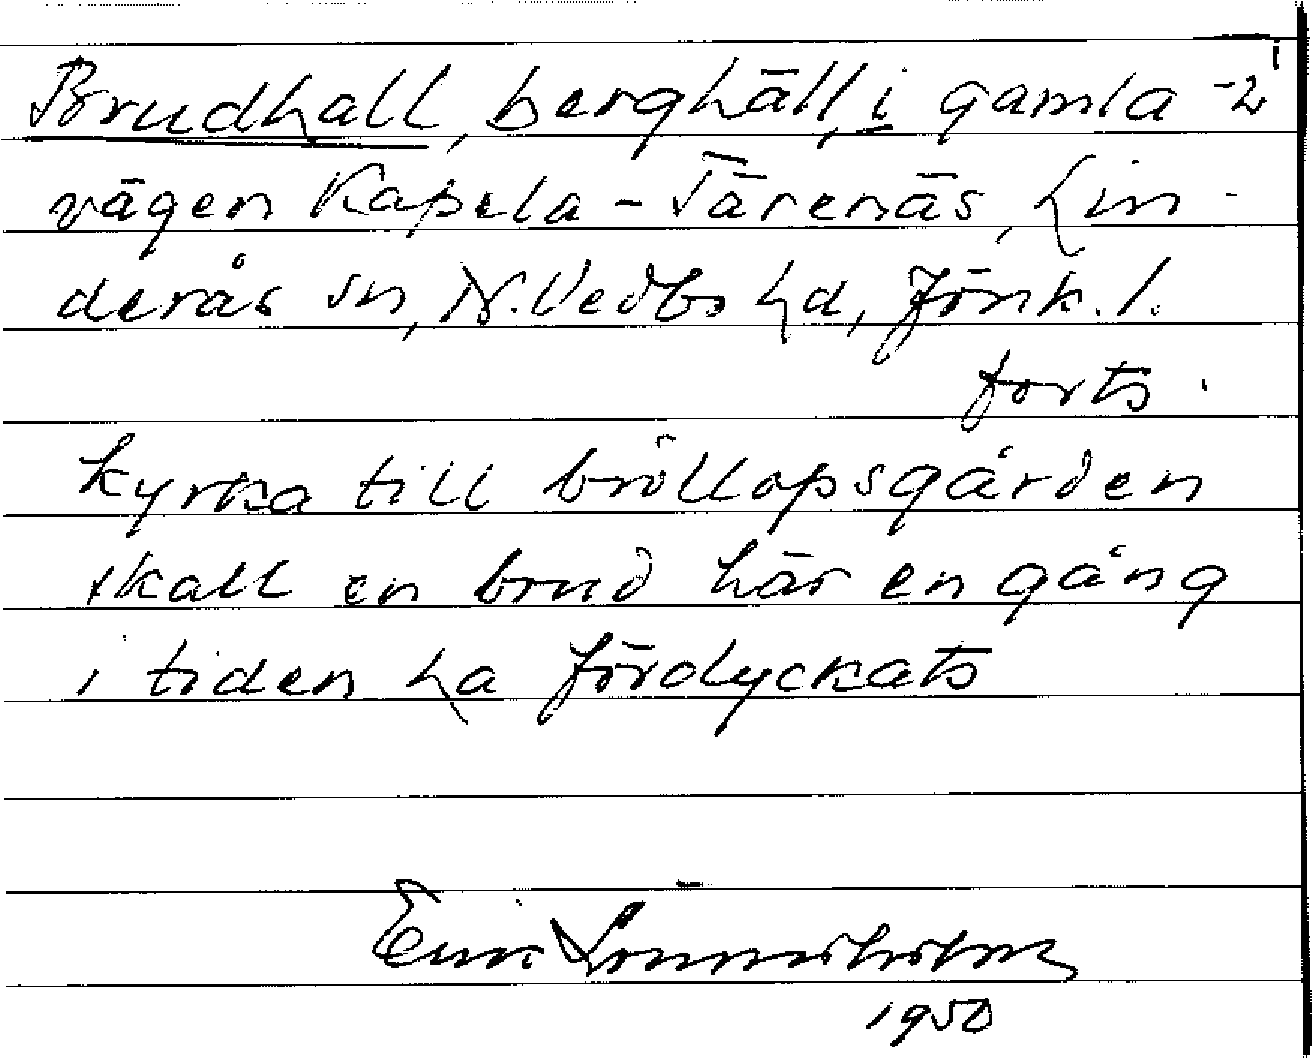 Brudhall, berghäll, i gamla -2
vägen Kapela - Tärenäs, Lin-
derås sn, N. Vedbo hd, Jönk. l.
forts.
kyrka till bröllopsgården
skall en brud här en gång
i tiden ha fördyckats
Erik
1950